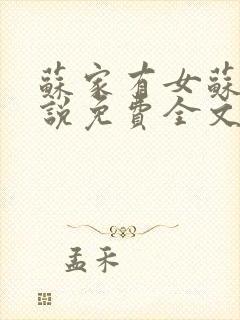 蘇家有女蘇
說免費全文
孟禾